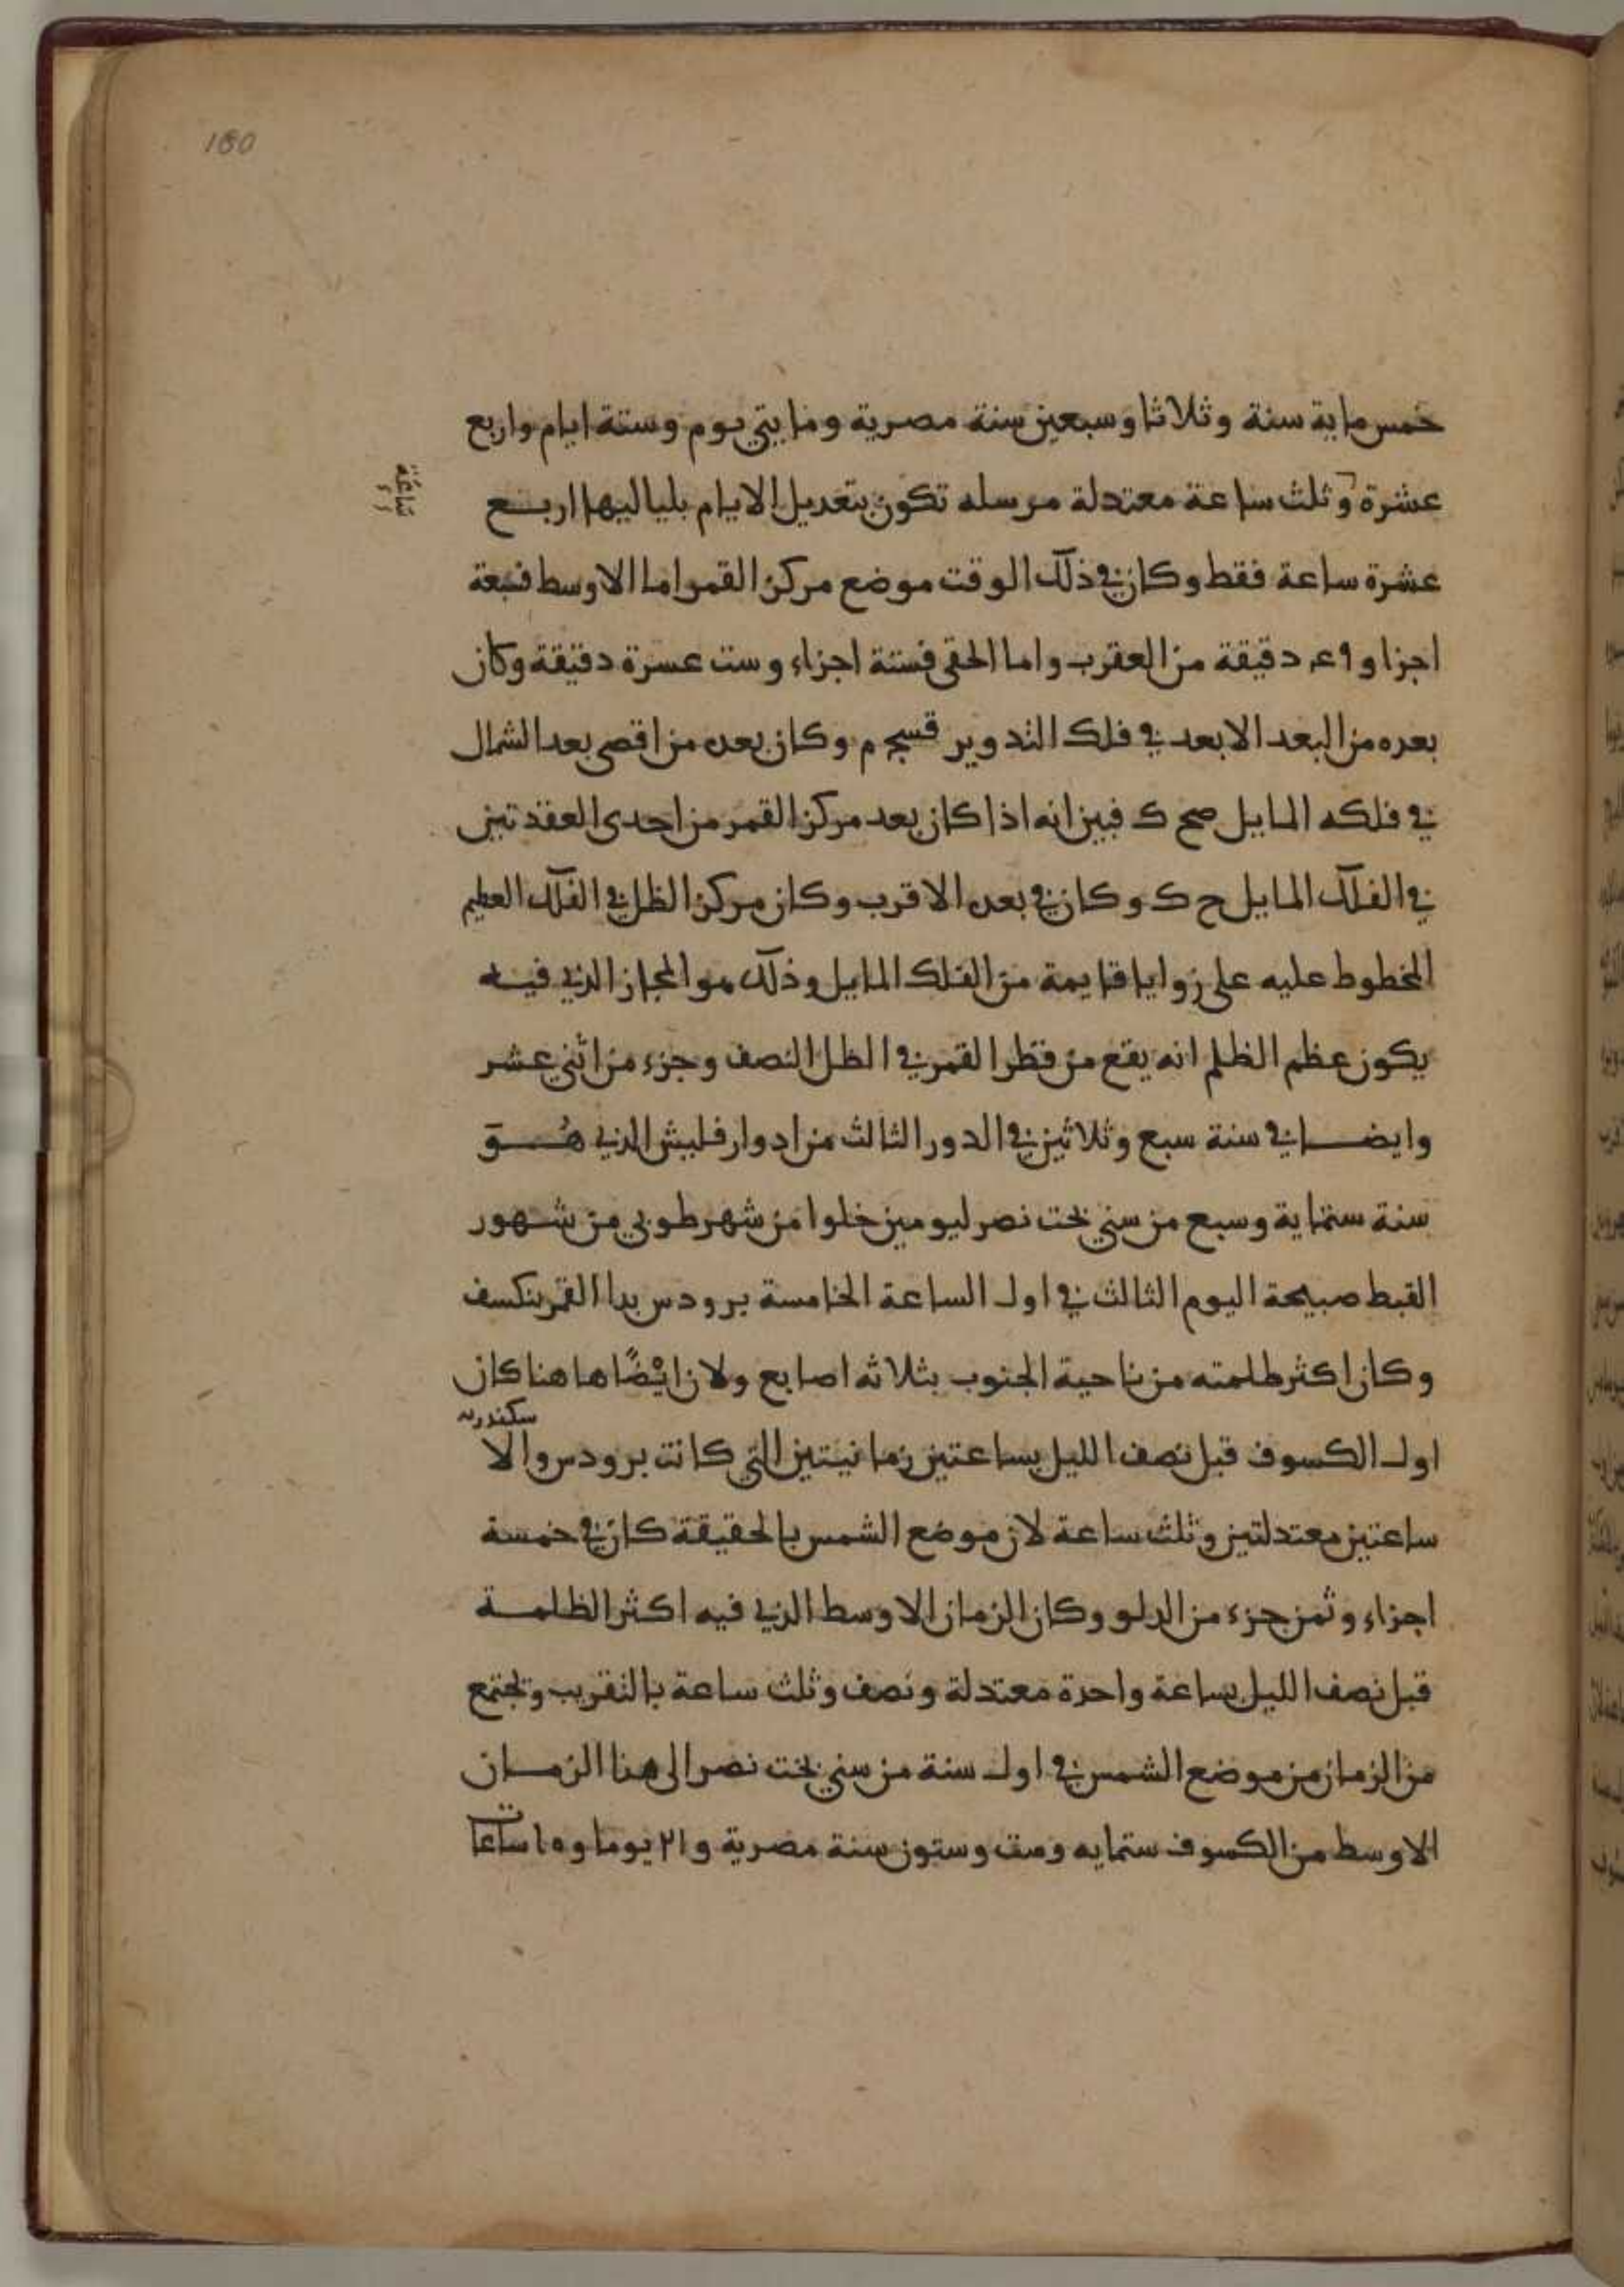 160
خمس ماية سنة وثلاثا وسبعين سنة مصرية ومايتي يوم وستة ايام واربع
عشرة وثلث ساعة معتدلة مرسله تكون بتعديل الايام بلياليها اربع
ساعة
عشرة ساعة فقط وكان في ذلك الوقت موضع مركز القمر اما الاوسط فسبعة
اجزا و دقيقة من العقرب واما الحقي فستة اجزاء وست عسرة دقيقة وكان
بعده من البعد الابعد في فلك التدوير قسج م وكان بعده من اقصى بعد الشمال
في فلكه المايل صح ك فبين انه اذا كان بعد مركز القمر من احدى العقدتين
في الفلك المايل ح ك وكان في بعده الاقرب وكان مركز الظل في الفلك العظيم
المخطوط عليه على زوايا قايمة من الفلك المايل وذلك هو المجاز الذي فيه
يكون عظم الظلم انه يقع من قطر القمر في الظل النصف وجزء من اثني عشر
وايضا في سنة سبع وثلاثين في الدور الثالث من ادوار فليبش الذي هو
سنة ستماية وسبع من سني بخت نصر ليومين خلوا من شهر طوبي من شهور
القبط صبيحة اليوم الثالث في اول الساعة الخامسة برودس بدا القمر ينكسف
وكان اكثر طلمته من ناحية الجنوب بثلاثه اصابع ولان ايضًا هاهنا كان
اول الكسوف قبل نصف الليل بساعتين زمانيتين التي كانت برودس والا سكندريه
ساعتين معتدلتين وثلث ساعة لان موضع الشمس بالحقيقة كان في خمسة
اجزاء وثمن جزء من الدلو وكان الزمان الاوسط الذي فيه اكثر الظلمة
قبل نصف الليل بساعة واحدة معتدلة ونصف وثلث ساعة بالتقريب وتجتمع
من الزمان من موضع الشمس في اول سنة من سني بخت نصر الى هذا الزمان
الاوسط من الكسوف ستمايه وست وستون سنة مصرية و ١٢١ يوما و ١٥ ساعات